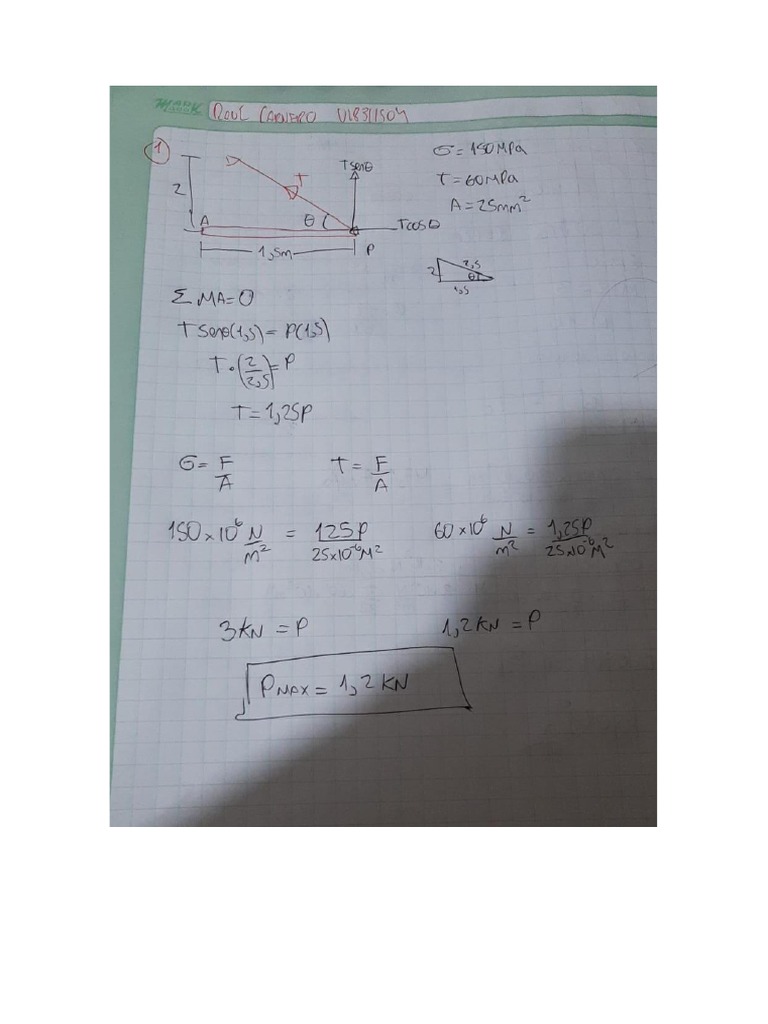 RAUL CARNERO U18311504
1
T senθ
σ = 150 MPa
T
2
τ = 60 MPa
A
θ
T cosθ
A = 25 mm²
1,5m
P
2 2,5 θ
1,5
Σ MA = 0
T senθ(1,5) = P(1,5)
T • (2/2,5) = P
T = 1,25P
σ = F/A τ = F/A
150 × 10⁶ N/m² = 125P/25×10⁻⁶ M² 60 × 10⁶ N/m² = 1,25P/25×10⁻⁶ M²
3 KN = P 1,2 KN = P
P MAX = 1,2 KN